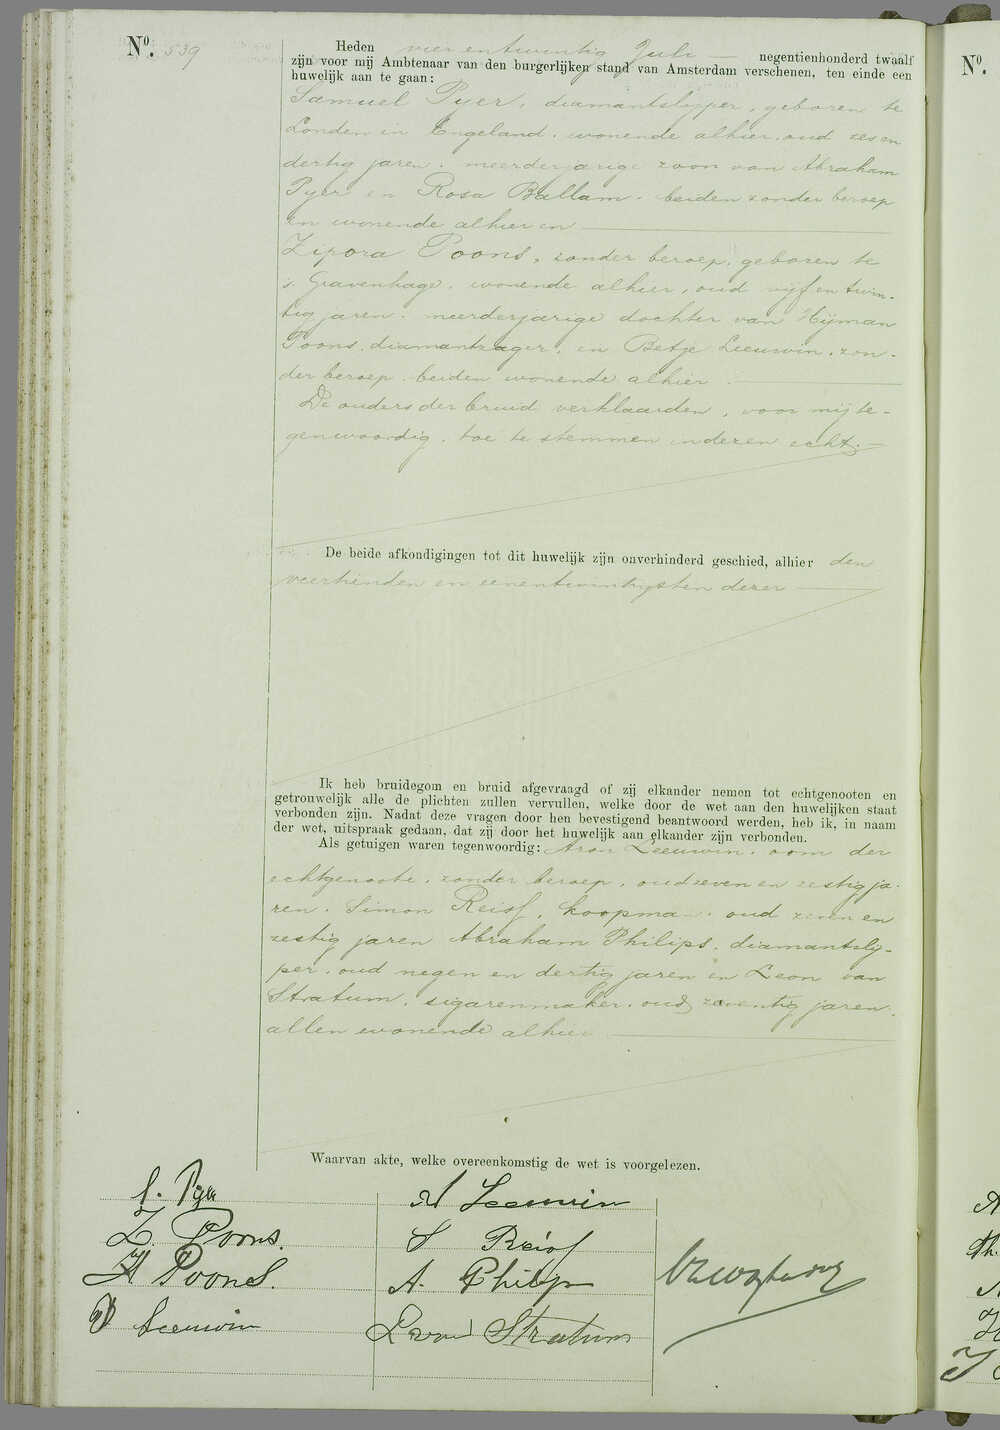 Nº. 539
Heden vier en twintig Juli negentienhonderd twaalf
zijn voor mij Ambtenaar van den burgerlijken stand van Amsterdam verschenen, ten einde een
huwelijk aan te gaan:
Samuel Pyer, diamantslijper, geboren te
Londen in Engeland, wonende alhier, oud zes en
dertig jaren, meerderjarige zoon van Abraham
Pyer en Rosa Ballam, beiden zonder beroep
en wonende alhier en
Zipora Poons, zonder beroep, geboren te
's Gravenhage, wonende alhier, oud vijf en twin-
tig jaren, meerderjarige dochter van Hijman
Poons, diamantzager, en Betje Leeuwin, zon-
der beroep, beiden wonende alhier.
De ouders der bruid verklaarden, voor mij te-
genwoordig, toe te stemmen in dezen echt.
De beide afkondigingen tot dit huwelijk zijn onverhinderd geschied, alhier den
veertienden en eenentwintigsten dezer
Ik heb bruidegom en bruid afgevraagd of zij elkander nemen tot echtgenooten en
getrouwelijk alle de plichten zullen vervullen, welke door de wet aan den huwelijken staat
verbonden zijn. Nadat deze vragen door hen bevestigend beantwoord werden, heb ik, in naam
der wet, uitspraak gedaan, dat zij door het huwelijk aan elkander zijn verbonden.
Als getuigen waren tegenwoordig: Aron Leeuwin, oom der
echtgenoote, zonder beroep, oud zeven en zestig ja-
ren, Simon Reisf, koopman, oud zeven en
zestig jaren Abraham Philips, diamantslij-
per, oud negen en dertig jaren en Leon van
Stratum, sigarenmaker, oud zeventig jaren,
allen wonende alhier
Waarvan akte, welke overeenkomstig de wet is voorgelezen.
S. Pyer
Z. Poons.
H Poons.
B Leeuwin
A Leeuwin
S Reisf
A. Philips
L van Stratum
Nº.